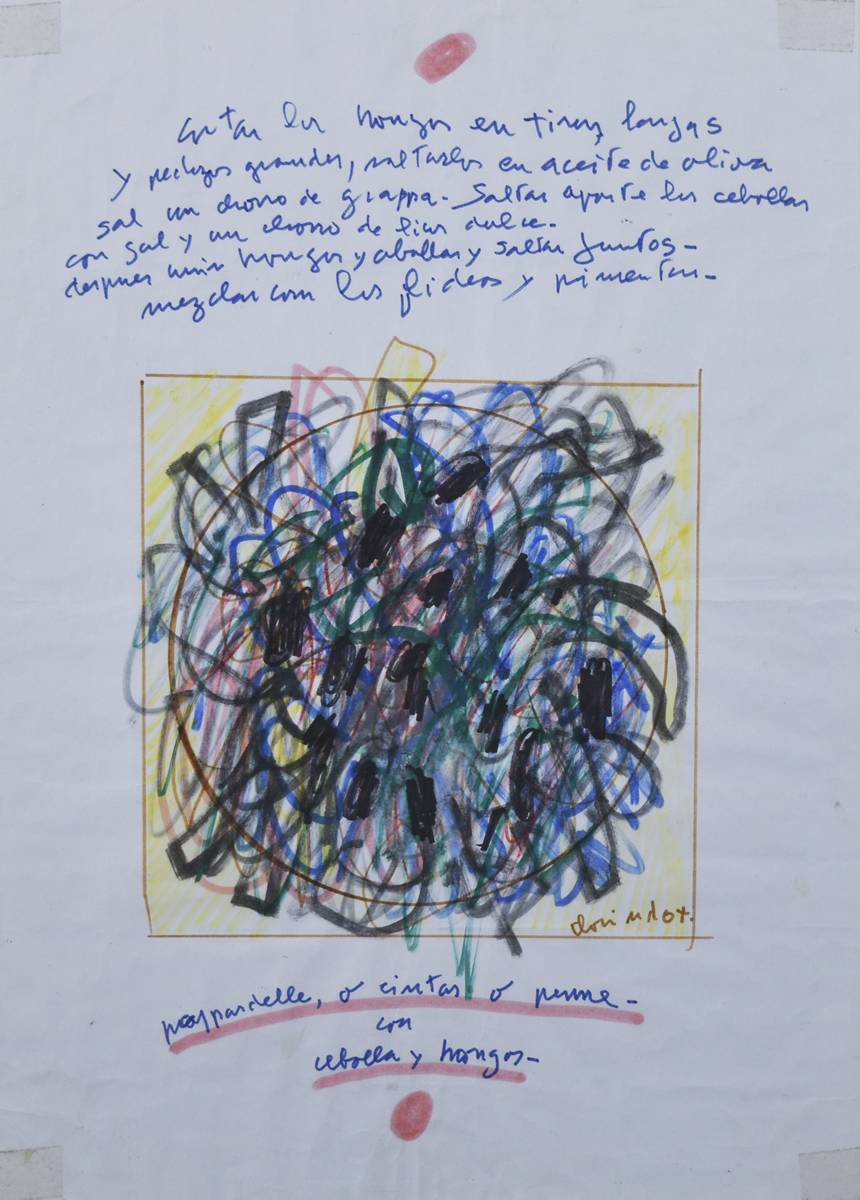 cortar los hongos en tiras largas
y pedazos grandes, saltarlos en aceite de oliva
sal un chorro de grappa. Saltar aparte las cebollas
con sal y un chorro de vino dulce.
despues unir hongos y cebollas y saltar juntos -
mezclar con los fideos y pimenton -
pappardelle, o cintas o penne -
con
cebolla y hongos -